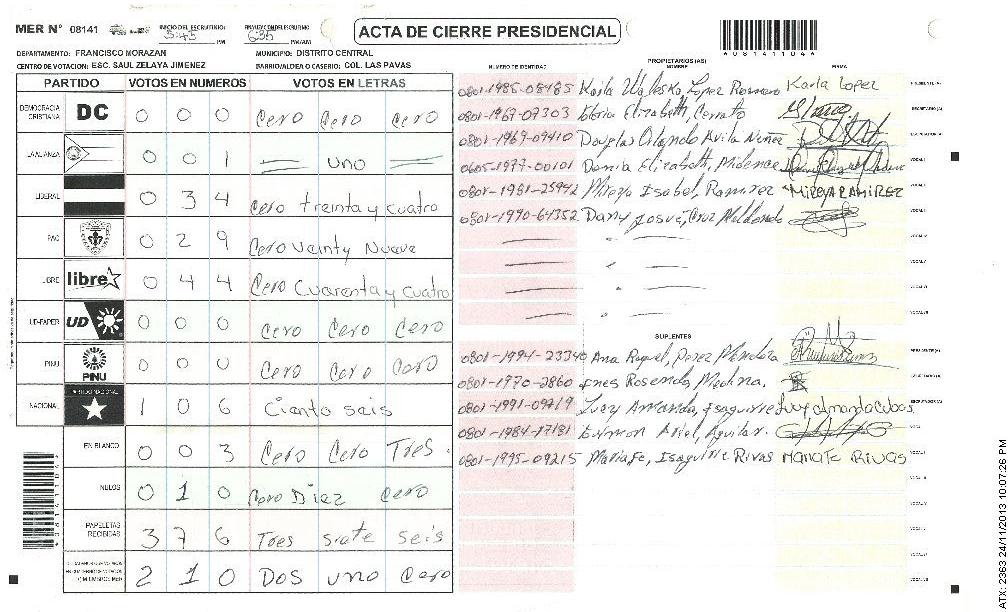 MER N° 08141
INICIO DEL ESCRUTINIO: 5:45 PM
FINALIZACION DEL ESCRUTINIO 6:35 PM/AM
ACTA DE CIERRE PRESIDENCIAL
DEPARTAMENTO: FRANCISCO MORAZAN
MUNICIPIO: DISTRITO CENTRAL
CENTRO DE VOTACION: ESC. SAUL ZELAYA JIMENEZ
BARRIO/ALDEA O CASERIO: COL. LAS PAVAS
PARTIDO VOTOS EN NUMEROS VOTOS EN LETRAS
DEMOCRACIA CRISTIANA DC 0 0 0 Cero Cero Cero
LA ALIANZA 0 0 1 uno
LIBERAL 0 3 4 Cero treinta y cuatro
PAC 0 2 9 Cero Veinty Nueve
LIBRE libre 0 4 4 Cero Cuarenta y cuatro
UD-FAPER UD 0 0 0 Cero Cero Cero
PINU PINU 0 0 0 Cero Cero Cero
NACIONAL 1 0 6 Ciento seis
EN BLANCO 0 0 3 Cero Cero Tres
NULOS 0 1 0 Cero Diez Cero
PAPELETAS RECIBIDAS 3 7 6 Tres siete seis
2 1 0 Dos uno Cero
NUMERO DE IDENTIDAD PROPIETARIOS (AS) NOMBRE FIRMA
0801-1985-08185 Karla Waleska, Lopez Romero Karla Lopez
0801-1967-07303 Gloria Elizabeth, Cerrato
0801-1969-09410 Douglas Orlando Avila Nuñez
0605-1977-00101 Dania Elizabeth, Midence
0801-1981-25942 Mireya Isabel, Ramirez MIREYA RAMIREZ
0801-1990-64352 Dany Josue, Cruz Maldonado
SUPLENTES
0801-1994-23340 Ana Raquel, Perez Mendoza
0801-1970-2860 Ines Rosendo, Medina,
0801-1991-09719 Lucy Amanda, Isaguirre
0801-1984-17181 Ariel, Aguilar.
0801-1995-09215 Maria Fe, Isaguirre Rivas Maria Fe Rivas
08141104
ATX: 2363 24/11/2013 10:07:26 PM